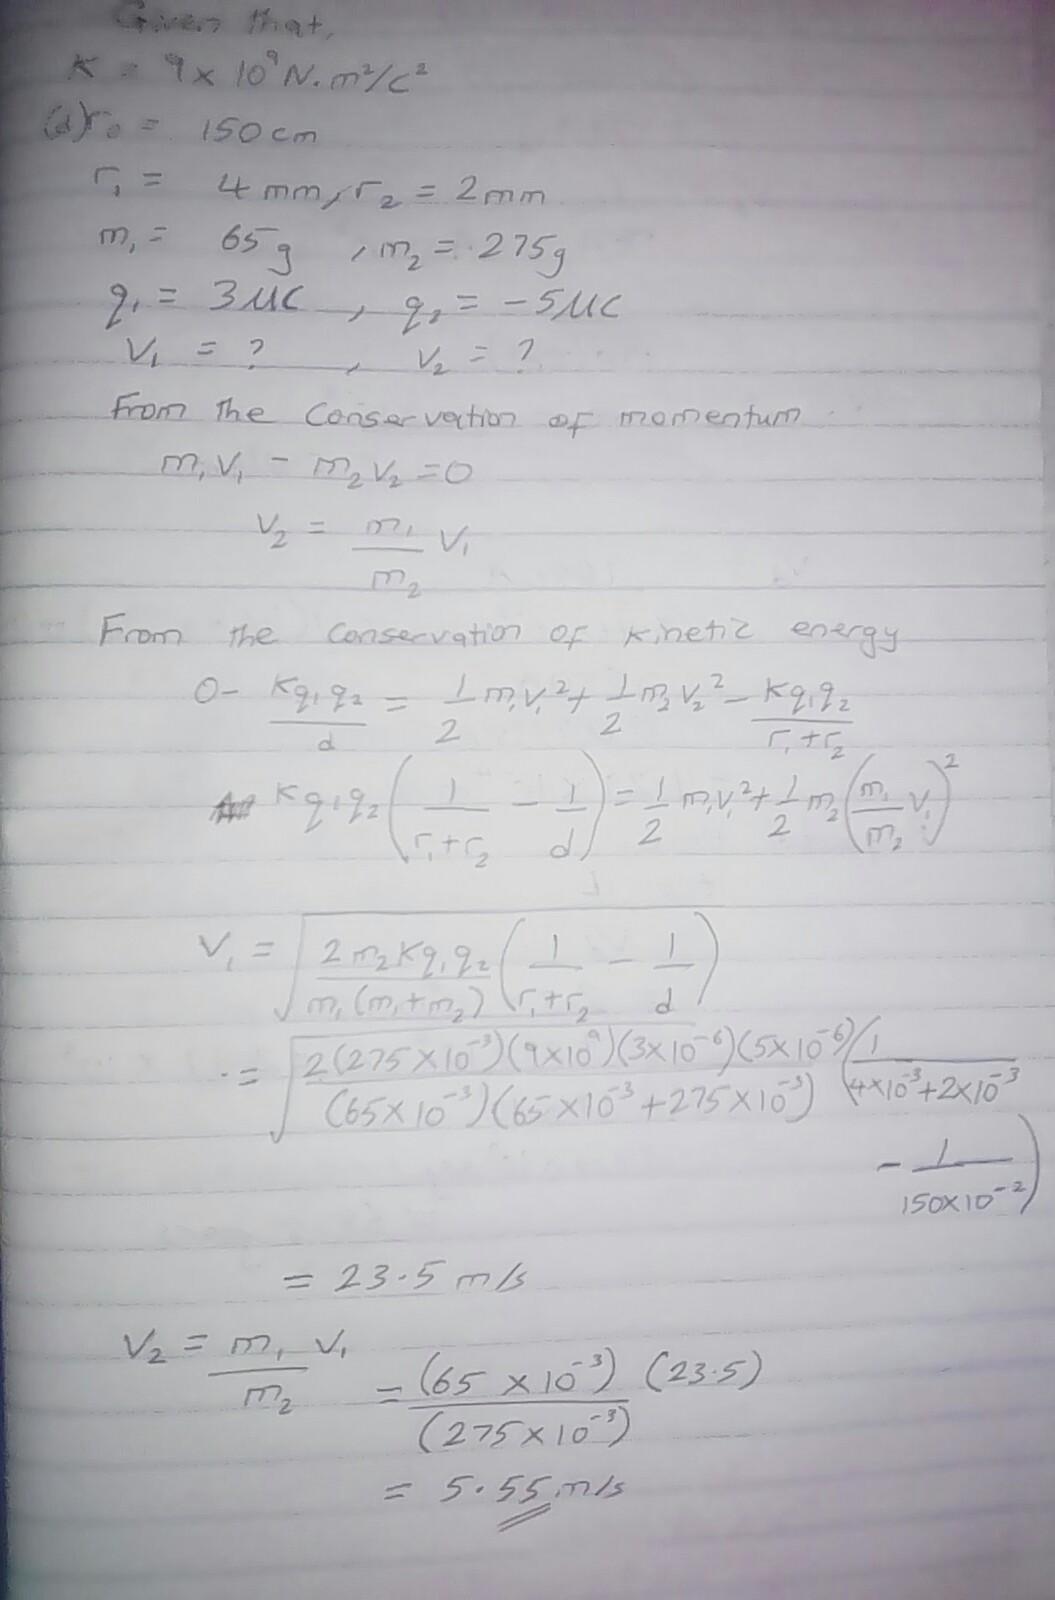 Given that,
K = 9 x 10⁹ N.m²/c²
(d) r₀ = 150 cm
r₁ = 4 mm, r₂ = 2 mm
m₁ = 65g , m₂ = 275g
q₁ = 3 μC , q₂ = -5 μC
V₁ = ? , V₂ = ?
From the Conservation of momentum
m₁V₁ - m₂V₂ = 0
V₂ = m₁/m₂ V₁
From the Conservation of Kinetic energy
0 - Kq₁q₂/d = 1/2 m₁V₁² + 1/2 m₂V₂² - Kq₁q₂/r₁+r₂
Kq₁q₂ (1/r₁+r₂ - 1/d) = 1/2 m₁V₁² + 1/2 m₂ (m₁/m₂ V₁)²
V₁ = √ 2m₂Kq₁q₂/m₁(m₁+m₂) (1/r₁+r₂ - 1/d)
= √ 2(275 x 10⁻³)(9x10⁹)(3x10⁻⁶)(5x10⁻⁶)/(65x10⁻³)(65x10⁻³+275x10⁻³) (1/4x10⁻³+2x10⁻³
- 1/150x10⁻²)
= 23.5 m/s
V₂ = m₁V₁/m₂ = (65 x 10⁻³) (23.5)/(275 x 10⁻³)
= 5.55 m/s